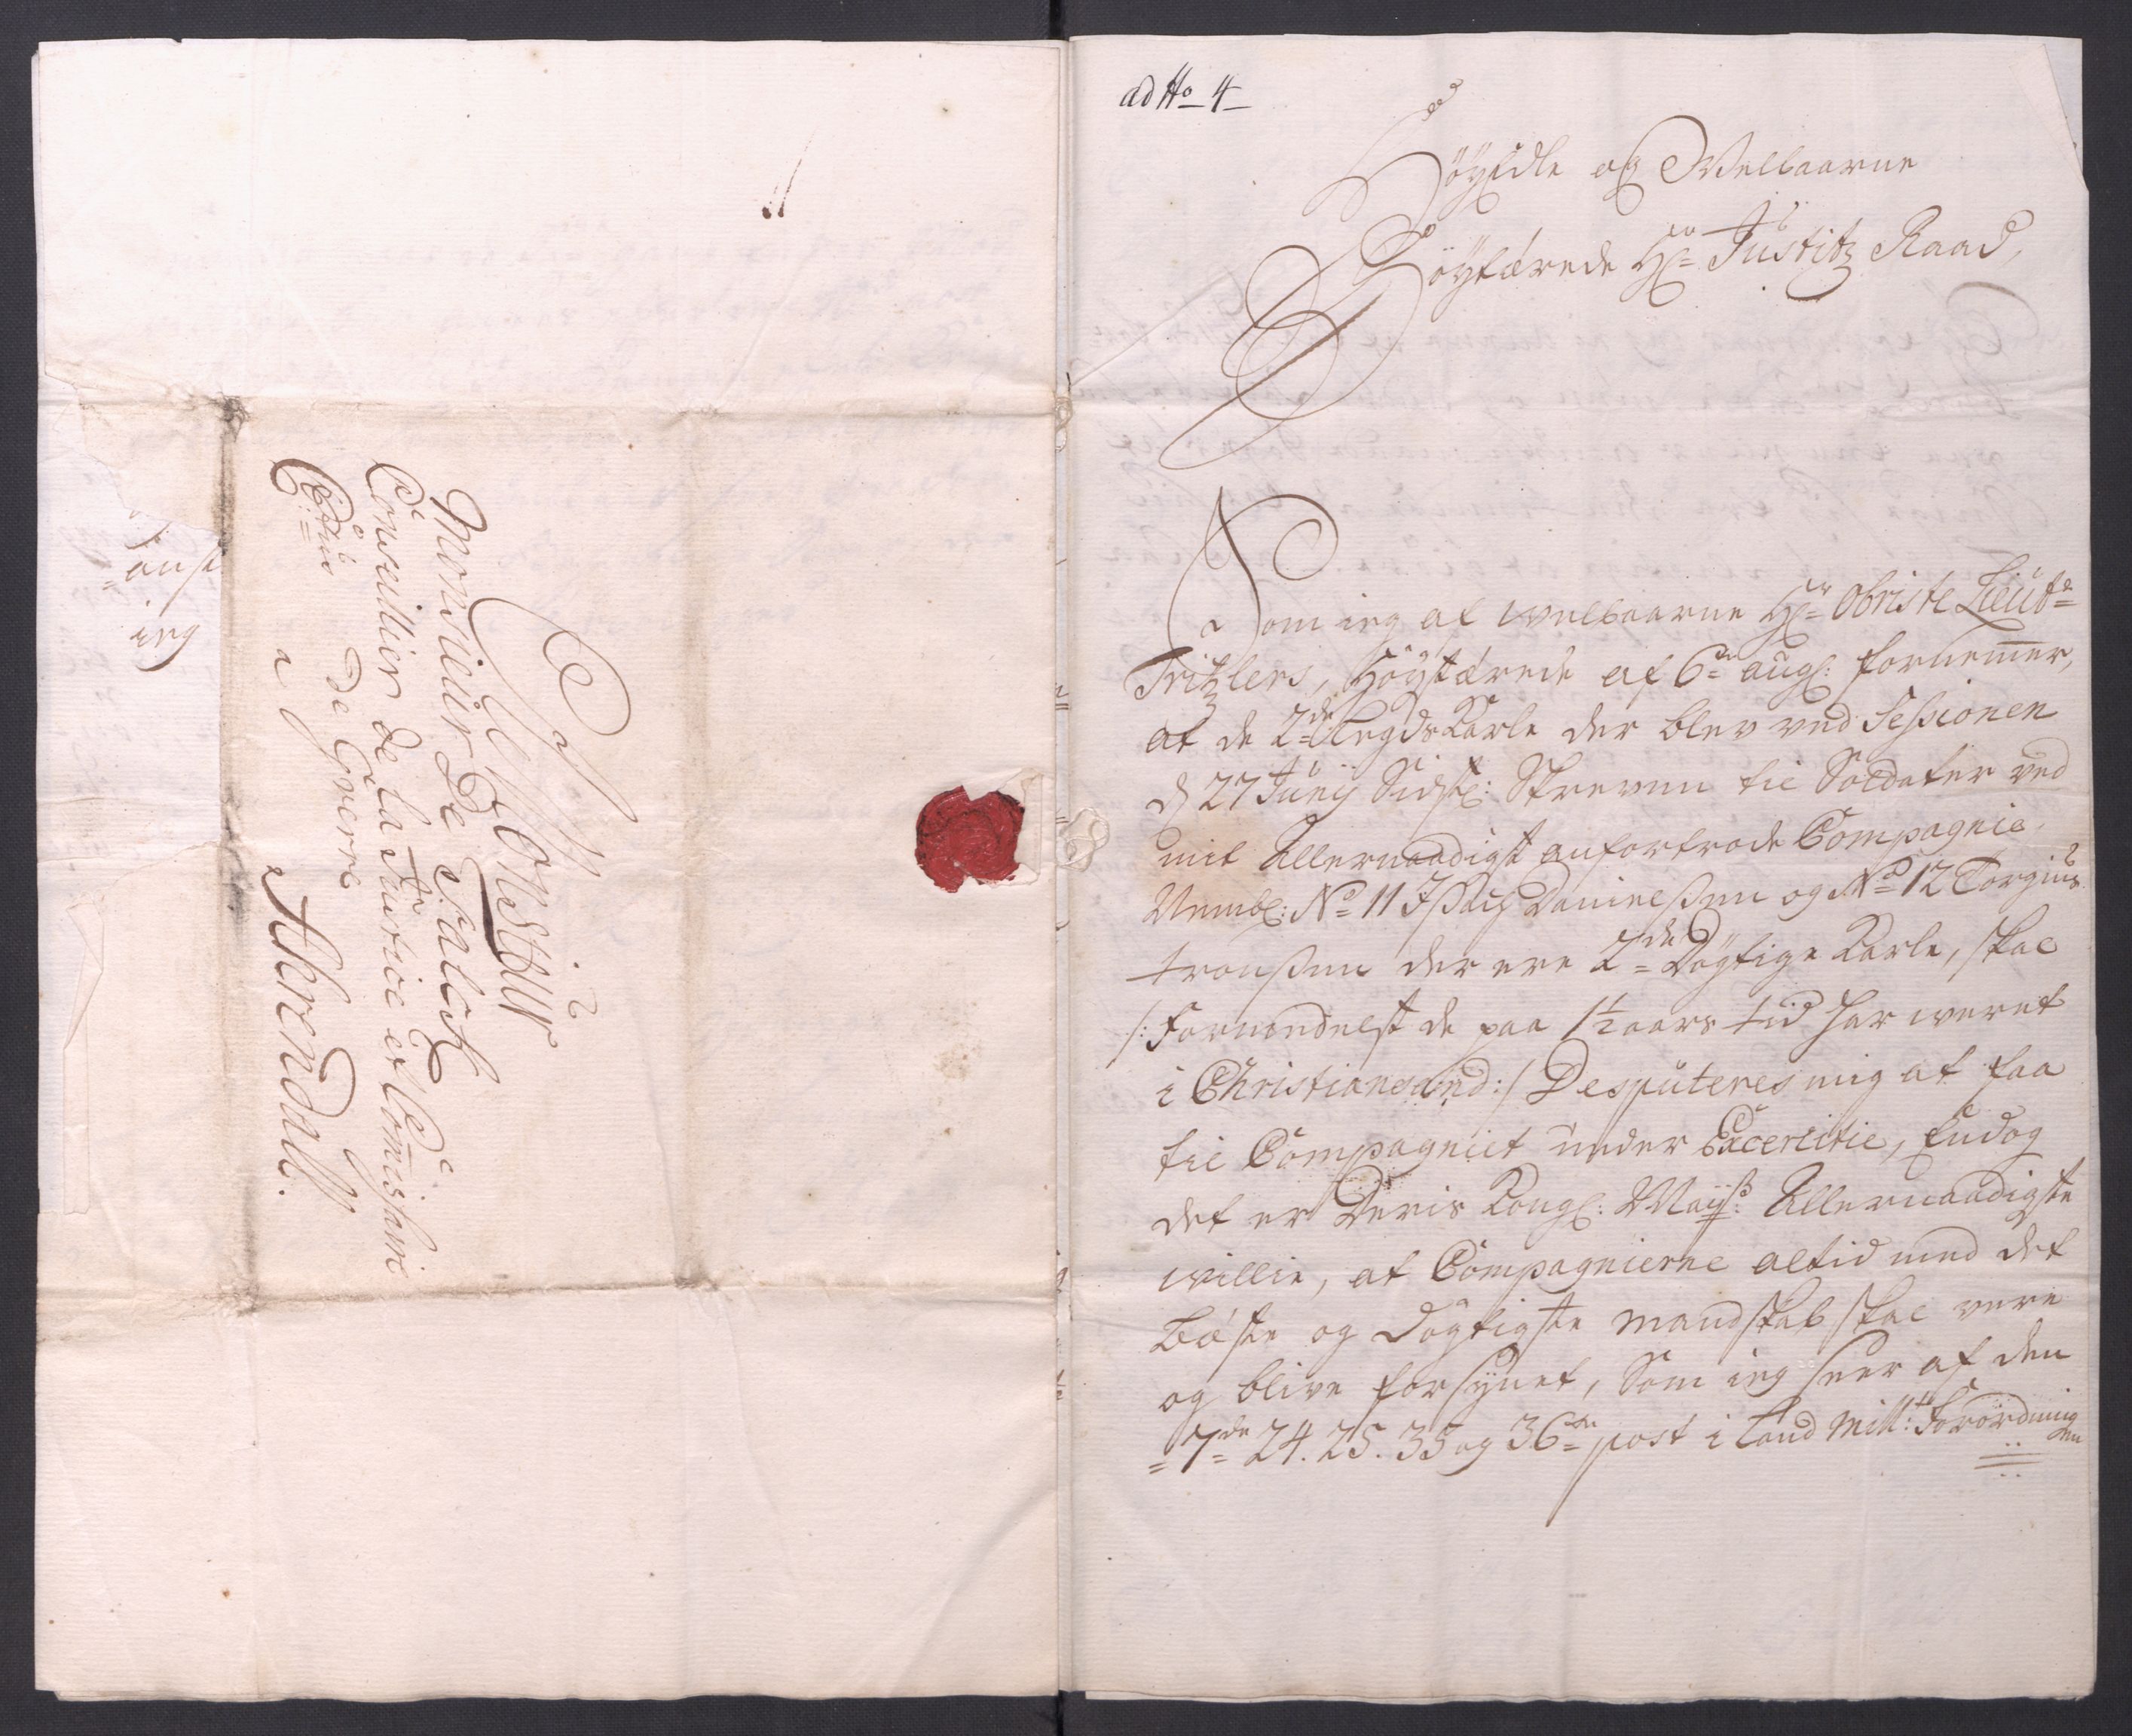 A Monsieur
Monsieur De Falck
Conseillier de La Justice et Commissaire
De Gverre
a
Ahrendall.
ieg
ad No 4
Höyædle og Welbaarne
Höytærede Hr Justitz Raad,
Som ieg af welbaarne Hr Obriste Lieutn
Fritzlers, Höystærede af 6te aug: fornemmer,
at de 2de Legds Karle der blev ved Sessionen
d 27 Junij Sidstl: Skreven til Soldater ved
mit Allernaadigst anfortrode Compagnie
Nembl: No 11 Isach Danielsen og No 12 Torgius
tronsen der ere 2de Dögtige Karle, skal
/: Formedelst de paa 1½ aars tid har weret
i Christiansand :/ Desputeres mig at faa
til Compagniet under Excercitie, Endog
det er Deris Kongl: Mays: Allernaadigste
willie, at Compagnierne altid med det
Bæste og Dögtigste Mandskab skal være
og blive forsÿnet, Som ieg seer af den
7de 24. 25. 35 og 36te post i Land Mill: Forordning
en